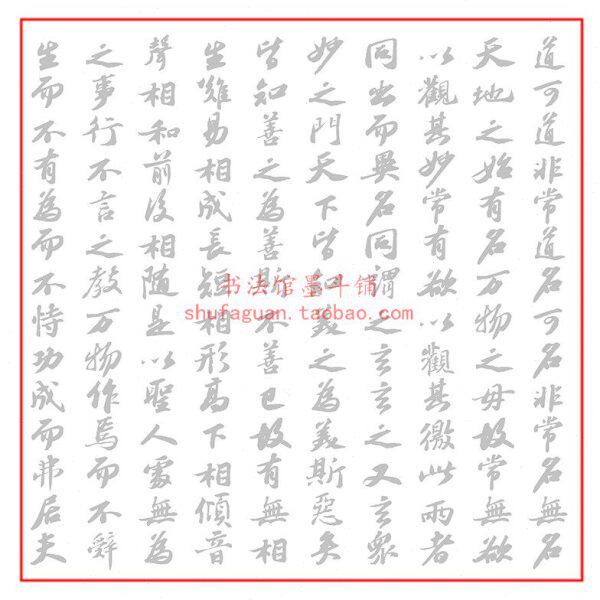 道可道非常道名可名非常名無名
天地之始有名万物之母故常無欲
以觀其妙常有欲以觀其徼此兩者
同出而異名同謂之玄玄之又玄衆
妙之門天下皆知美之為美斯惡矣
皆知善之為善斯不善已故有無相
生難易相成長短相形高下相傾音
聲相和前後相随是以聖人處無為
之事行不言之教万物作焉而不辭
生而不有為而不恃功成而弗居夫
书法馆墨斗铺
shufaguan.taobao.com